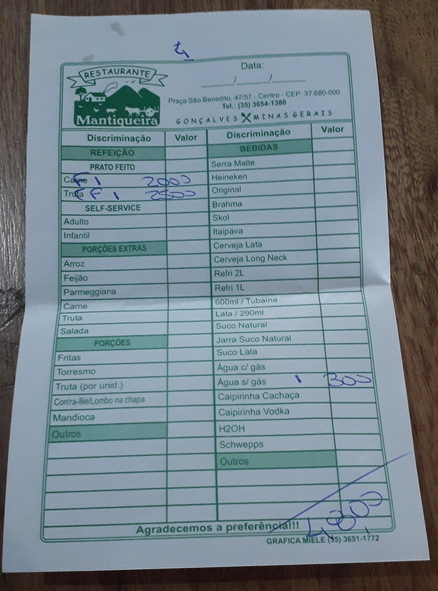 4
RESTAURANTE
Mantiqueira
Data:
____/____/____
Praça São Benedito, 47/57 - Centro - CEP: 37.680-000
Tel.: (35) 3654-1380
GONÇALVES MINAS GERAIS
Discriminação Valor
REFEIÇÃO
PRATO FEITO
Carne 1 2000
Truta 1 2500
SELF-SERVICE
Adulto
Infantil
PORÇÕES EXTRAS
Arroz
Feijão
Parmeggiana
Carne
Truta
Salada
PORÇÕES
Fritas
Torresmo
Truta (por unid.)
Contra-filé/Lombo na chapa
Mandioca
Outros
Discriminação Valor
BEBIDAS
Serra Malte
Heineken
Original
Brahma
Skol
Itaipava
Cerveja Lata
Cerveja Long Neck
Refri 2L
Refri 1L
600ml / Tubaína
Lata / 290ml
Suco Natural
Jarra Suco Natural
Suco Lata
Água c/ gás
Água s/ gás 1 300
Caipirinha Cachaça
Caipirinha Vodka
H2OH
Schwepps
Outros
Agradecemos a preferência!!!
GRAFICA MIELE (35) 3651-1772